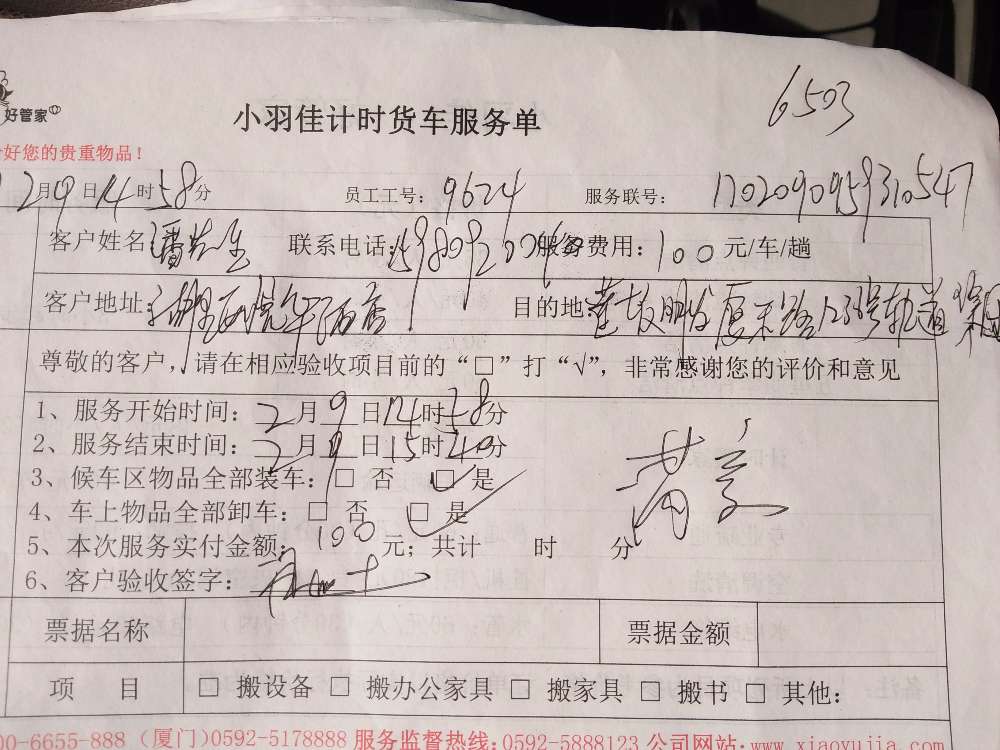 6503
好管家
小羽佳计时货车服务单
好您的贵重物品！
2月9日14时58分 员工工号：9624 服务联号：1702090959310547
客户姓名：潘先生 联系电话： 服务费用：100元/车/趟
客户地址： 目的地
尊敬的客户，请在相应验收项目前的“□”打“√”，非常感谢您的评价和意见
1、服务开始时间：2月9日14时58分
2、服务结束时间：2月9日15时40分
3、候车区物品全部装车：□ 否 □ 是
4、车上物品全部卸车：□ 否 □ 是
5、本次服务实付金额：100元；共计 时 分
6、客户验收签字：
票据名称 票据金额
项 目 □ 搬设备 □ 搬办公家具 □ 搬家具 □ 搬书 □ 其他：
00-6655-888（厦门）0592-5178888 服务监督热线：0592-5888123 公司网站：www.xiaoyujia.com